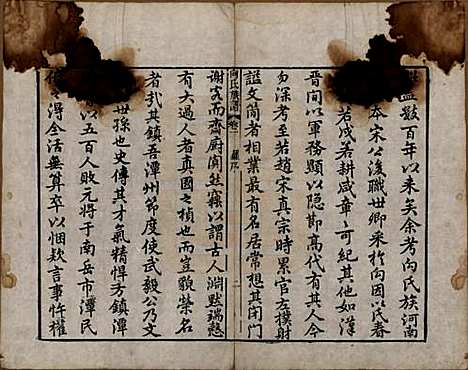 盬數百年以來矣余考向氏族河南
本宋公後職世卿采於向因以氏春
若戌若耕咸章章可紀其他如漢
晉間以軍務顯以隱節高代有其人今
勿深考至若趙宋真宗時累官左僕射
諡文簡者相業最有名居常想其閉門
向氏族譜 卷一 舊序 二
謝客而齋厨闃然竊以謂古人淵默瑞慤
有大過人者真國之楨也而豈藐榮名
者哉其鎮吾潭州節度使武毅公乃文
世孫也史傳其才氣精悍方鎮潭
以五百人敗元將于南岳市潭民
得全活無算卒以悃欵言事忤權